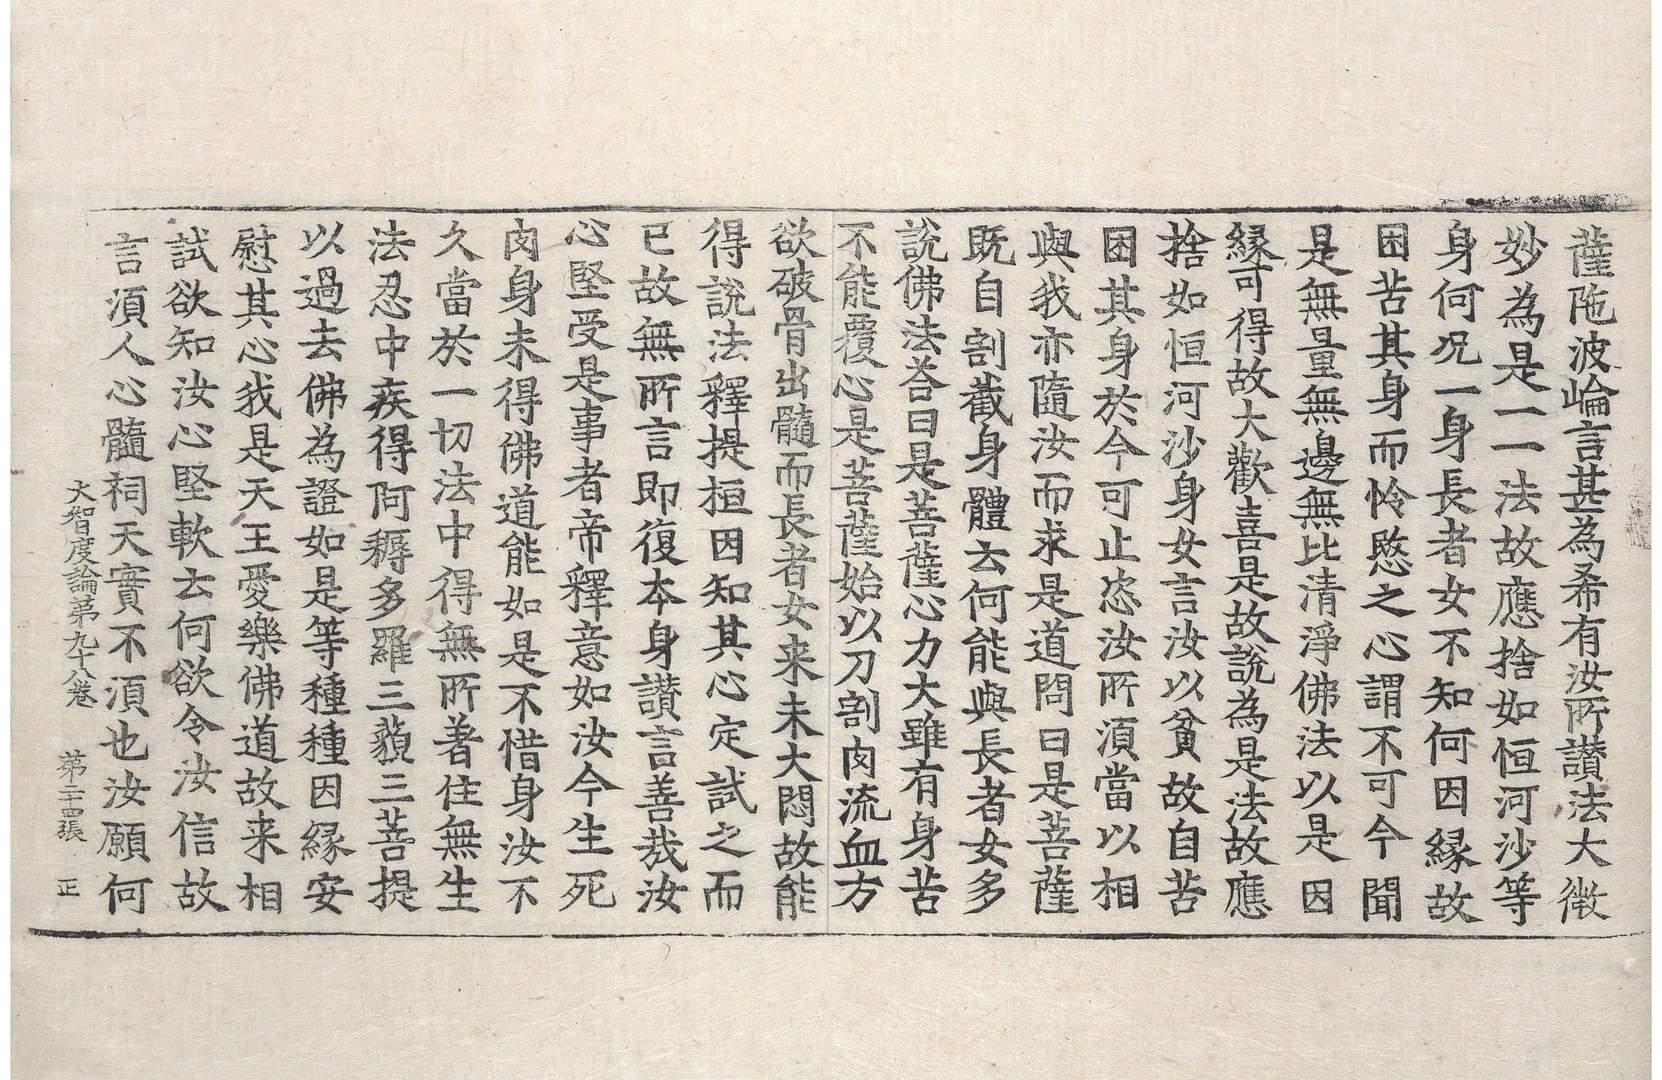 薩陁波崘言甚為希有汝所讃法大微
妙為是一一法故應捨如恒河沙等
身何况一身長者女不知何因縁故
困苦其身而怜愍之心謂不可今聞
是無量無邊無比清淨佛法以是因
縁可得故大歡喜是故說為是法故應
捨如恒河沙身女言汝以貧故自苦
困其身於今可止恣汝所湏當以相
與我亦隨汝而求是道問曰是菩薩
既自割截身體云何能與長者女多
說佛法荅曰是菩薩心力大雖有身苦
不能覆心是菩薩始以刀割肉流血方
欲破骨出髓而長者女来未大悶故能
得說法釋提桓因知其心定試之而
已故無所言即復本身讃言善哉汝
心堅受是事者帝釋意如汝今生死
肉身未得佛道能如是不惜身汝不
久當於一切法中得無所著住無生
法忍中疾得阿耨多羅三藐三菩提
以過去佛為證如是等種種因縁安
慰其心我是天王愛樂佛道故来相
試欲知汝心堅軟云何欲令汝信故
言湏人心髓祠天實不湏也汝願何
大智度論第九十八卷 第二十四張 正